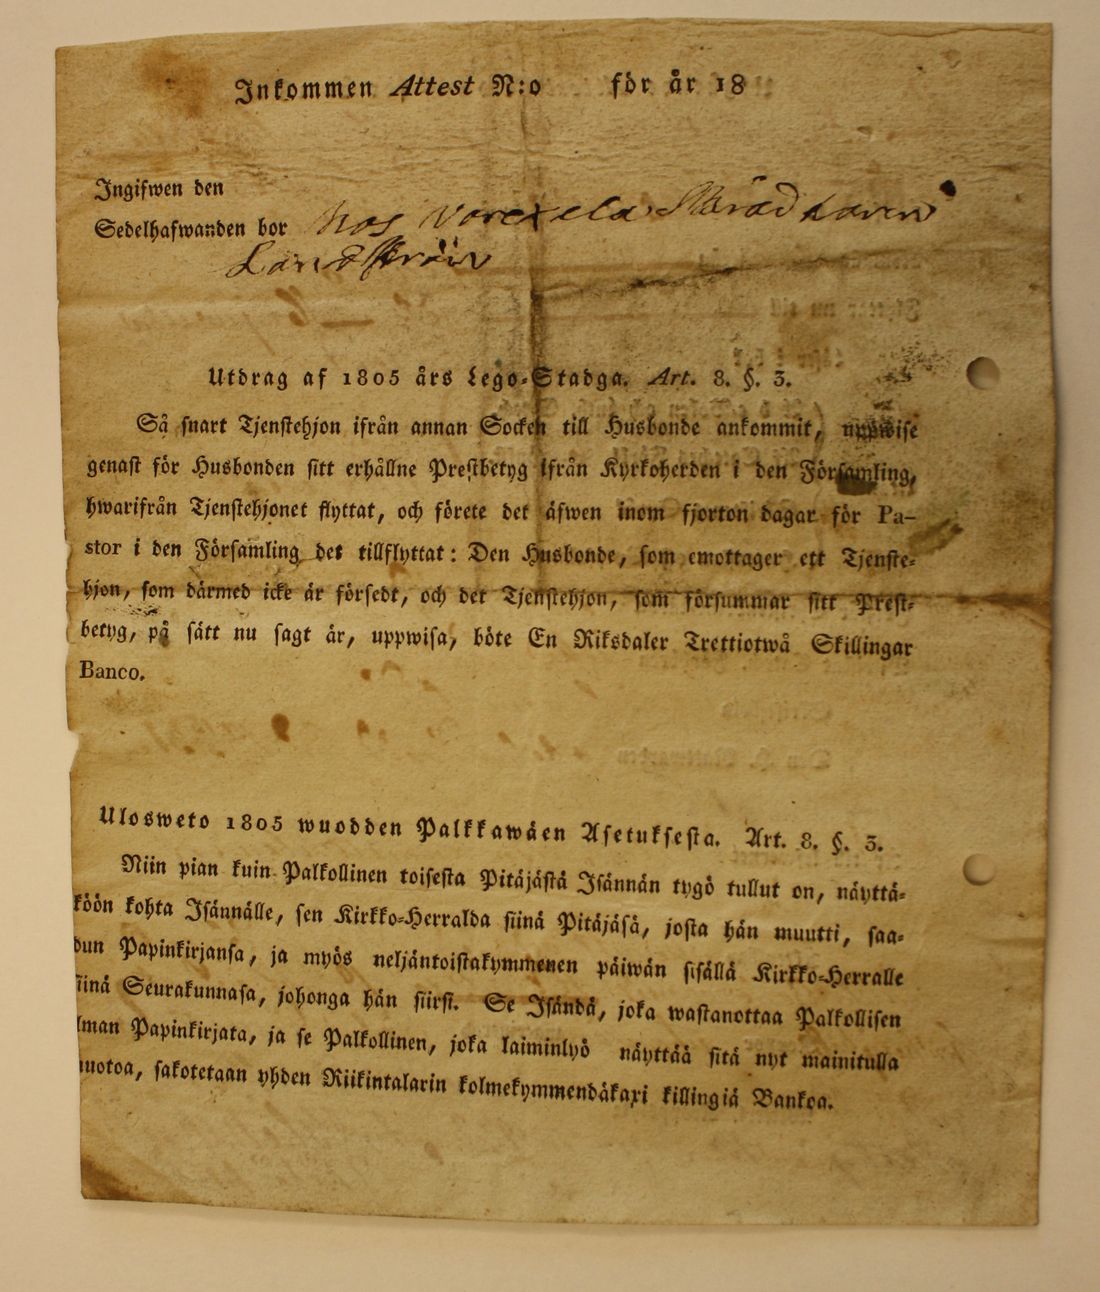 Inkommen Attest N:o för år 18
Ingifwen den
Sedelhafwanden bor hos
Utdrag af 1805 års Lego-Stadga. Art. 8. §. 3.
Så snart Tjenstehjon ifrån annan Socken till Husbonde ankommit, uppwise
genast för Husbonden sitt erhållne Prestbetyg ifrån Kyrkoherden i den Församling,
hwarifrån Tjenstehjonet flyttat, och förete det äfwen inom fjorton dagar för Pa-
stor i den Församling det tillflyttat: Den Husbonde, som emottager ett Tjenste-
hjon, som därmed icke är försedt, och det Tjenstehjon, som försummar sitt Prest-
betyg, på sätt nu sagt är, uppwisa, böte En Riksdaler Trettiotwå Skillingar
Banco.
Ulosweto 1805 wuodden Palkkawäen Asetuksesta. Art. 8. §. 3.
Niin pian kuin Palkollinen toisesta Pitäjästä Isännän tygö tullut on, näyttä-
köön kohta Isännälle, sen Kirkko-Herralda siinä Pitäjäsä, josta hän muutti, saa-
dun Papinkirjansa, ja myös neljäntoistakymmenen päiwän sisällä Kirkko-Herralle
siinä Seurakunnasa, johonga hän siirsi. Se Isändä, joka wastanottaa Palkollisen
ilman Papinkirjata, ja se Palkollinen, joka laiminlyö näyttää sitä nyt mainitulla
muotoa, sakotetaan yhden Riikintalarin kolmekymmendäkaxi killingiä Bankoa.